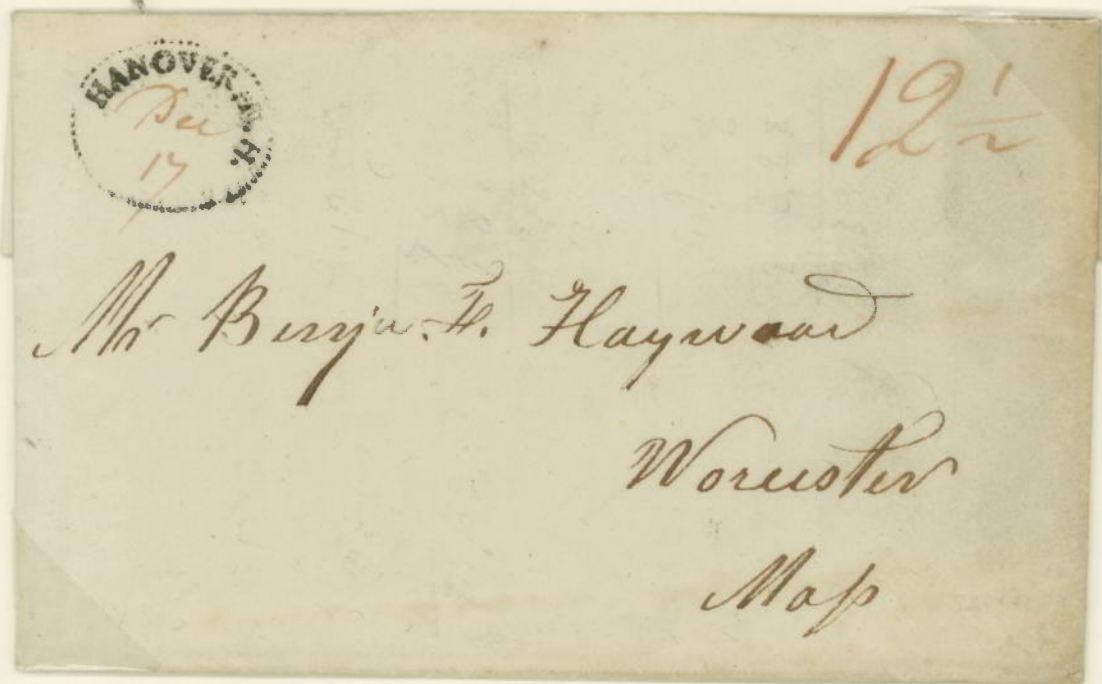 HANOVER. N.H.
Dec
17
12 1/2
Mr Benja. F. Haywood
Worcester
Mass